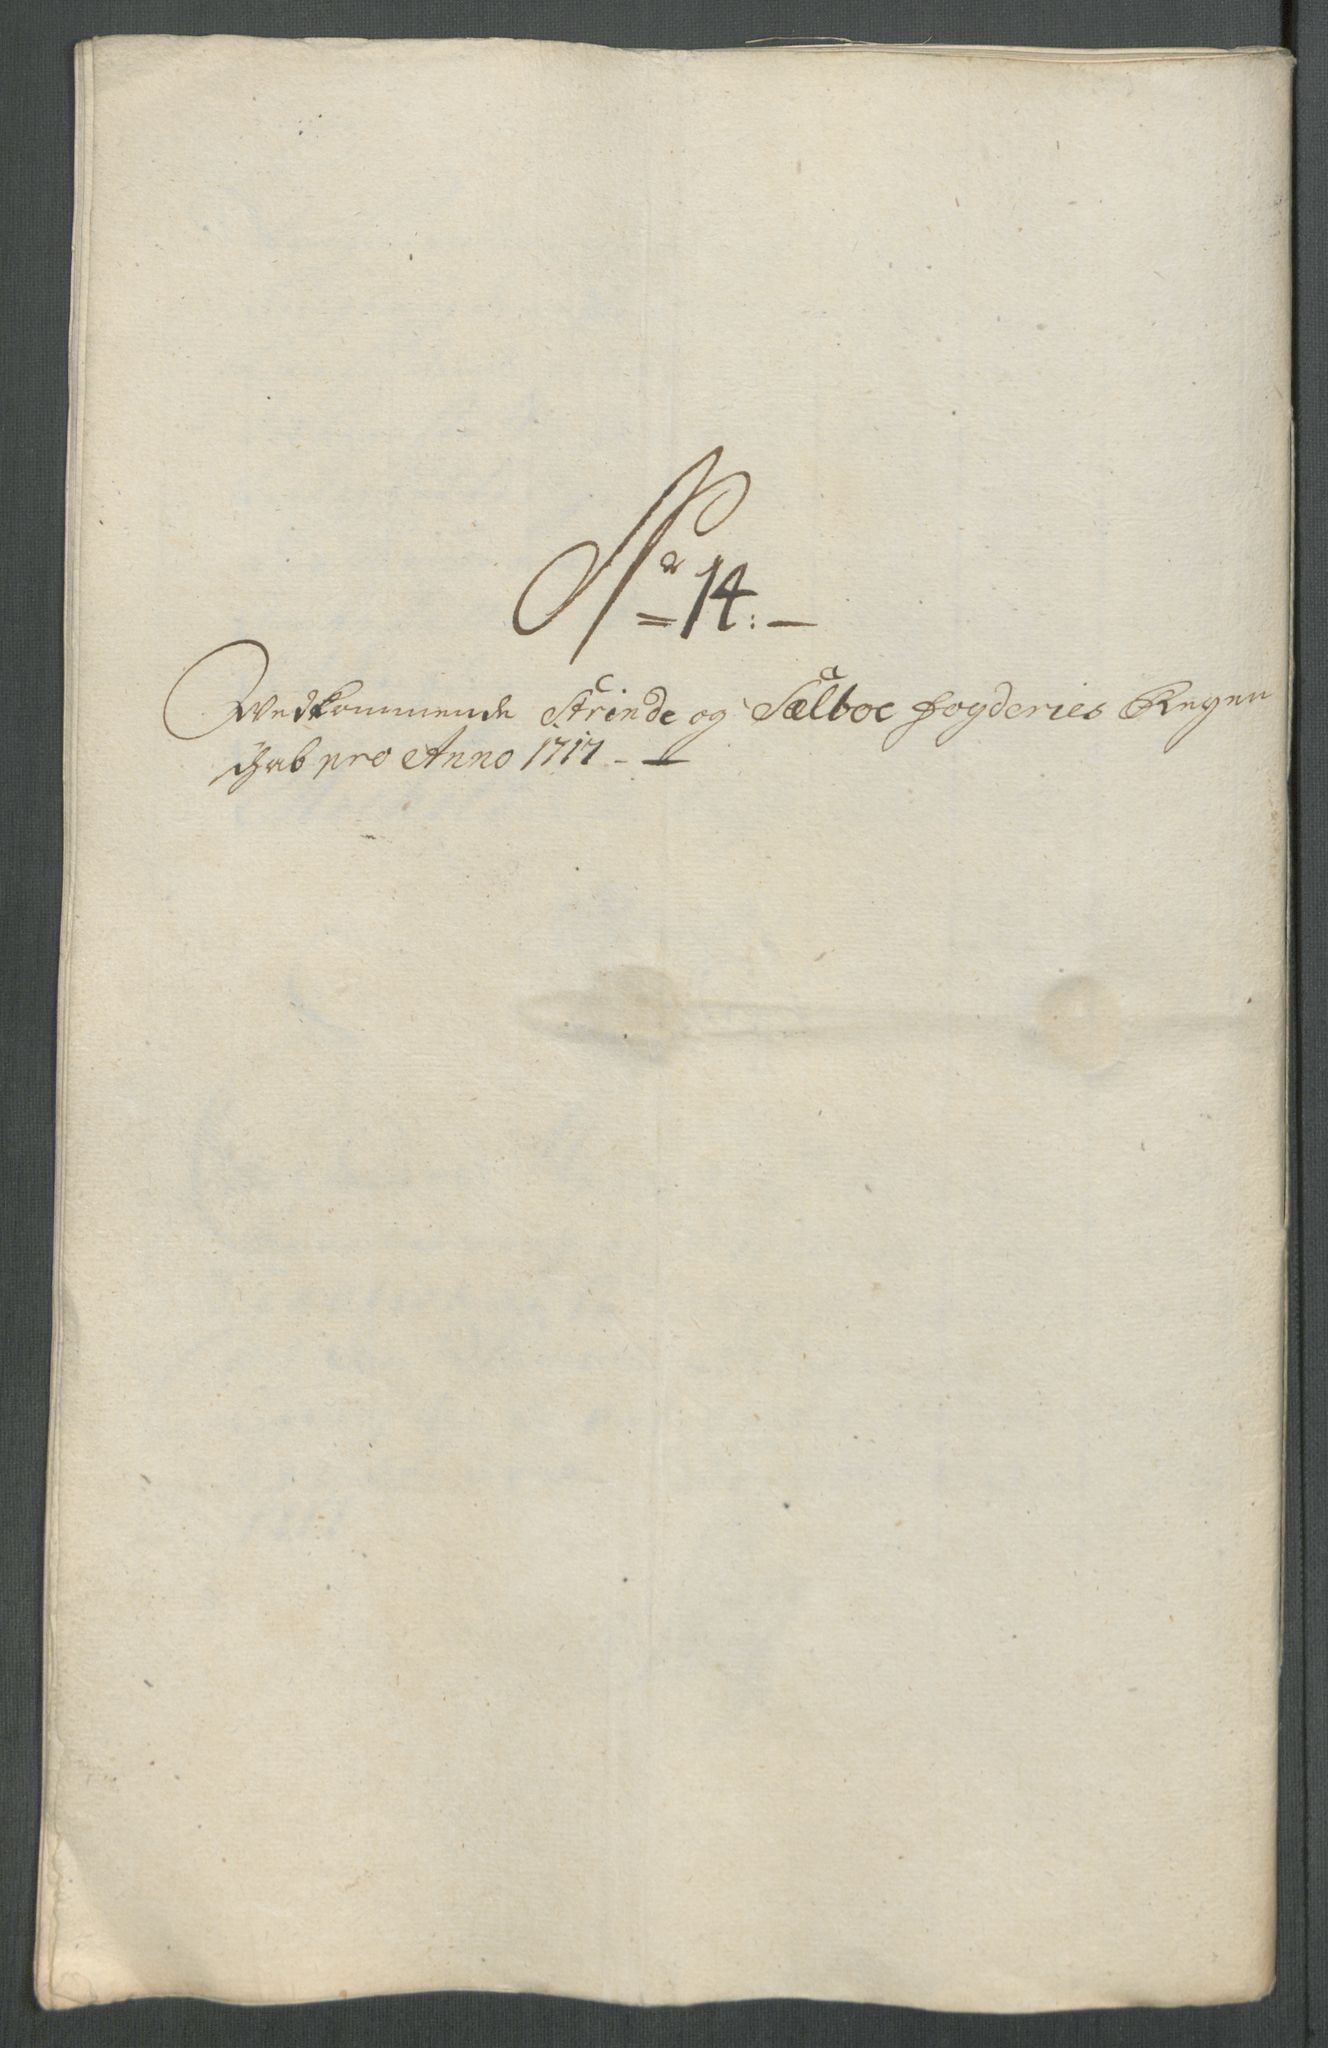 No 14:
Wedkommende Strinde og Sælboe fogderies Regen
skab pro Anno 1717